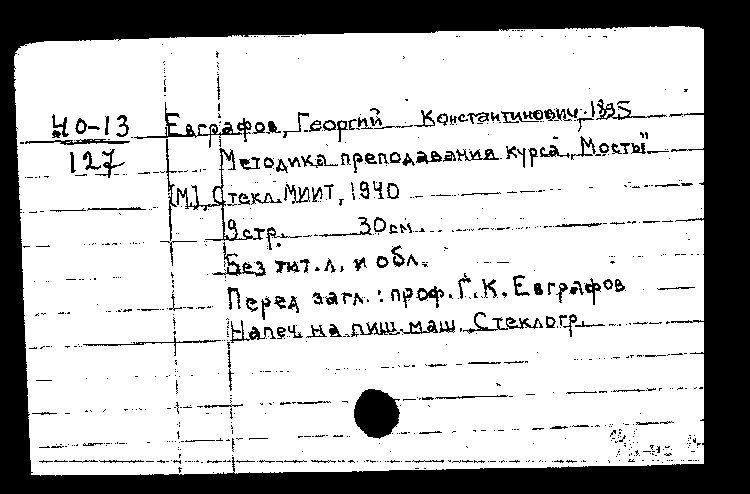 40-13
127
Евграфов, Георгий Константинович, 1895
Методика преподавания курса „Мосты"
[М], Стекл. МИИТ, 1940
9 стр. 30 см.
Без тит. л. и обл.
Перед загл.: проф. Г. К. Евграфов
Напеч. на пиш. маш. Стеклогр.